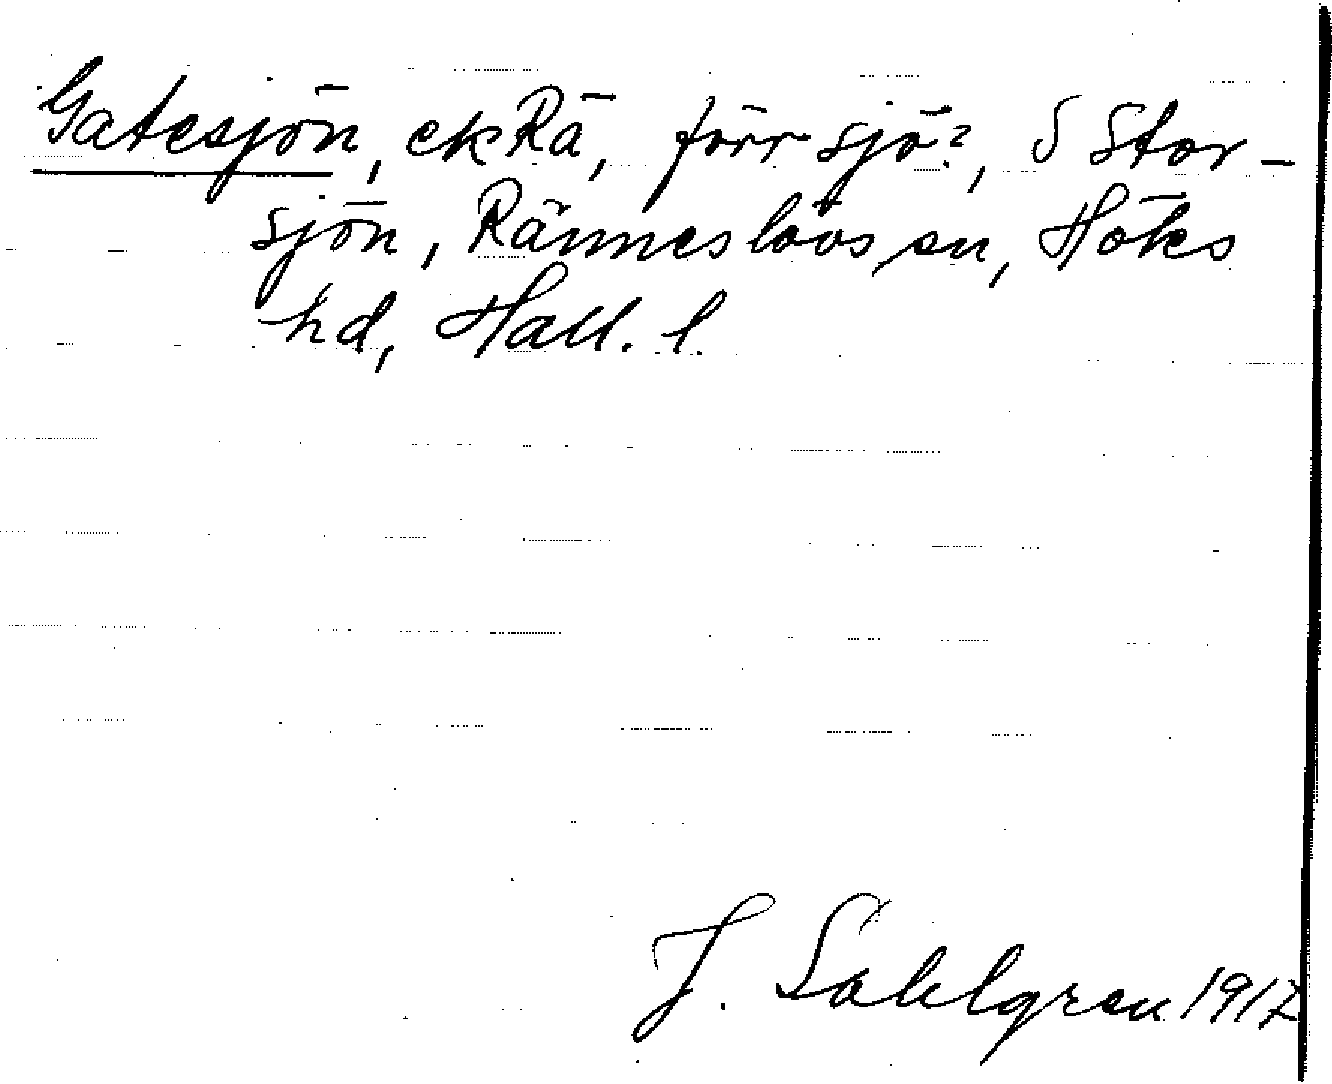 Gatesjön, ekRä, förr sjö?, S Stor-
sjön, Ränneslövs sn, Höks
hd, Hall. l.
J. Sahlgren 1917